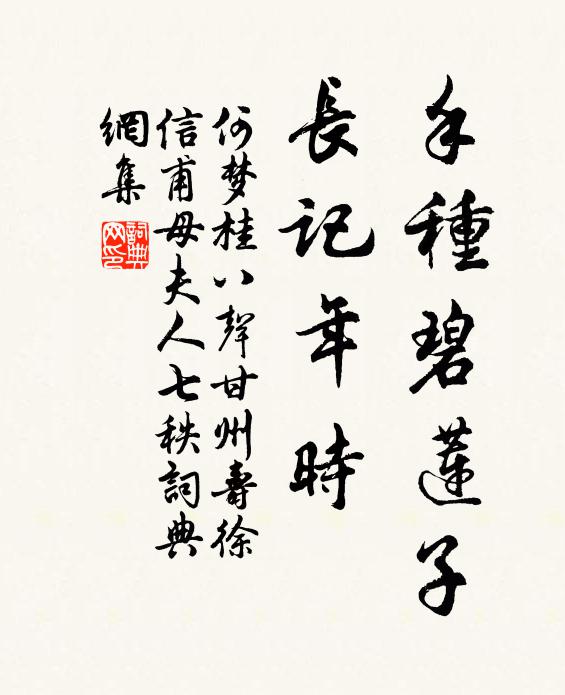 手種碧蓮子
長記年時
何梦桂八聲甘州壽徐
信甫母夫人七秩詞典
網集
詞典
网印